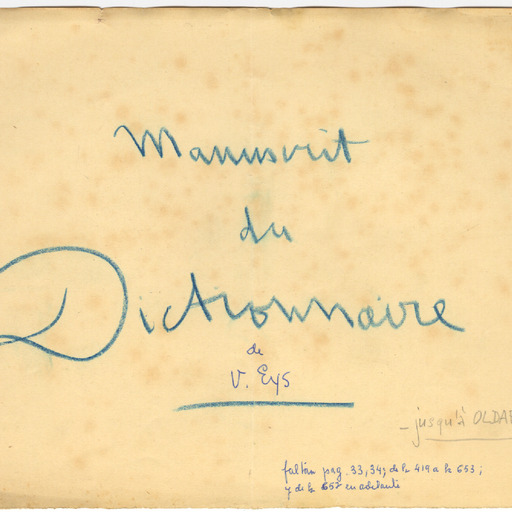 Manuscrit
du
Dictionnaire
de
V. Eys
- jusqu'à
faltan pag. 33, 34; de la 419 a la 653;
y de la 657 en adelante